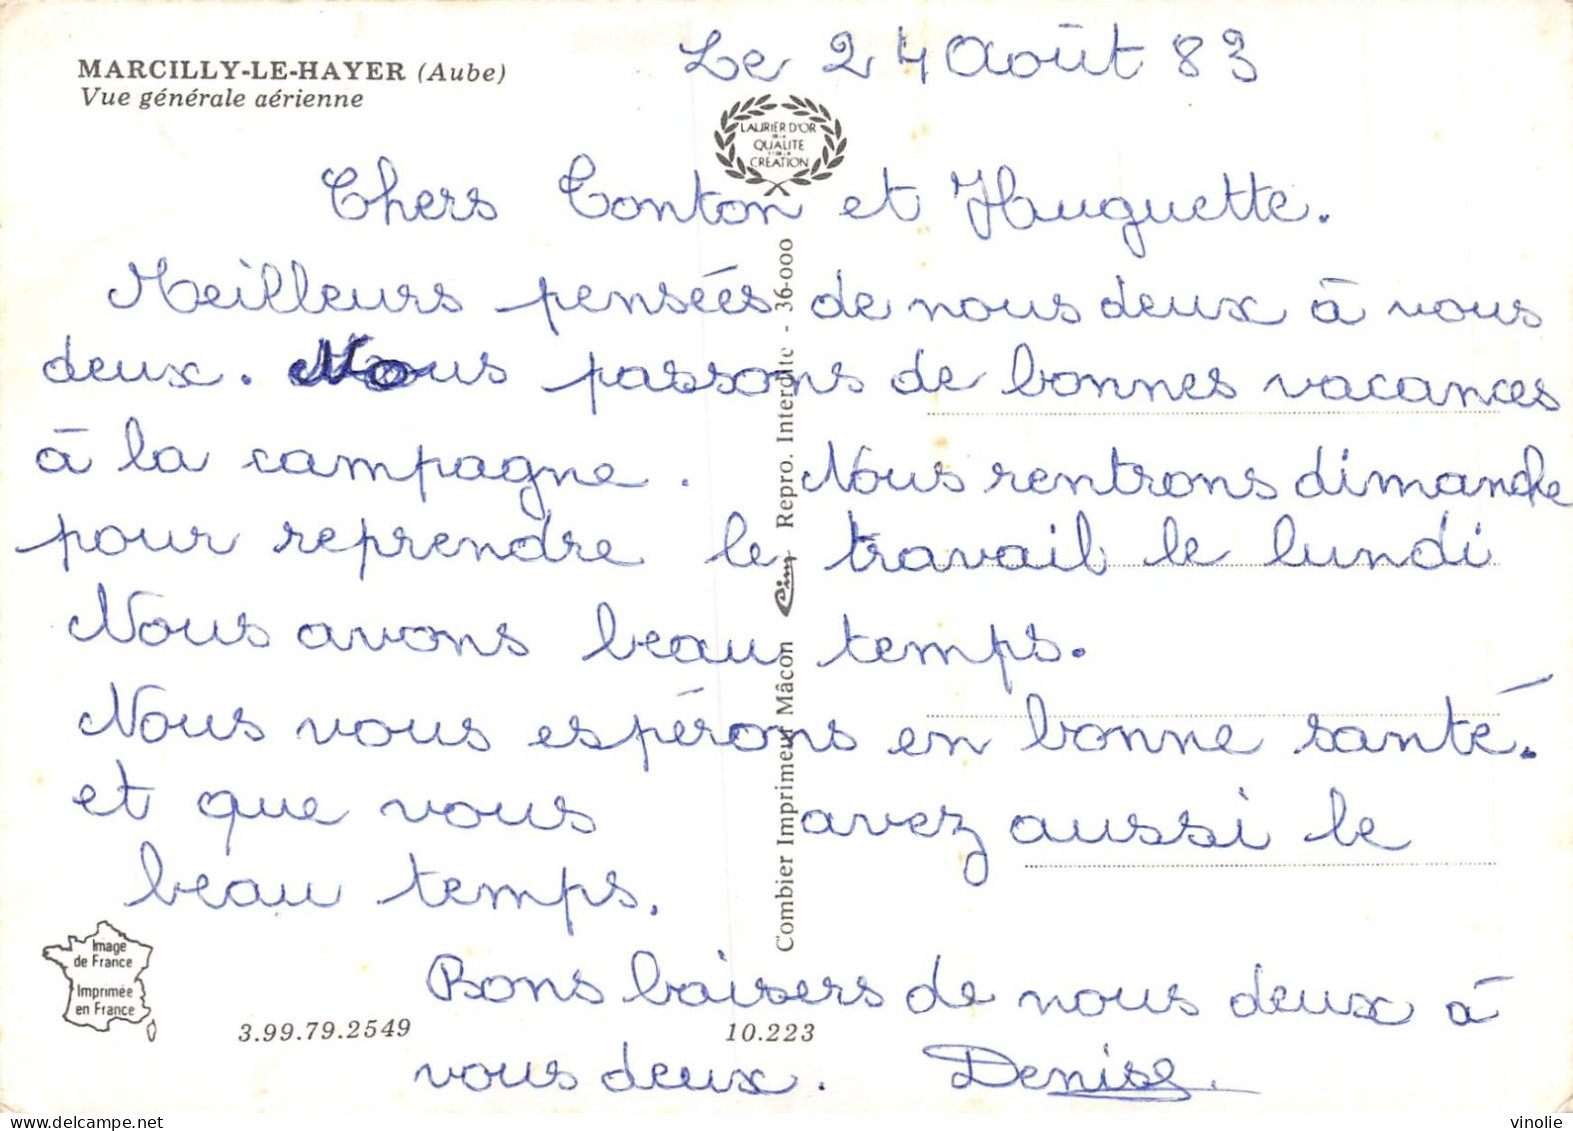 Le 24 Août 83
MARCILLY-LE-HAYER (Aube)
Vue générale aérienne
LAURIER D'OR
DE LA
QUALITE
ET DE LA
CREATION
Chers Tonton et Huguette.
Meilleurs pensées de nous deux à vous
deux. Nous passons de bonnes vacances
à la campagne. Nous rentrons dimanche
pour reprendre le travail le lundi
Nous avons beau temps.
Nous vous espérons en bonne santé.
et que vous avez aussi le
beau temps.
Bons baisers de nous deux à
vous deux. Denise.
Combier Imprimeur Mâcon Cim Repro. Interdite - 36-000
Image
de France
Imprimée
en France
3.99.79.2549
10.223
vinolie // delcampe.net